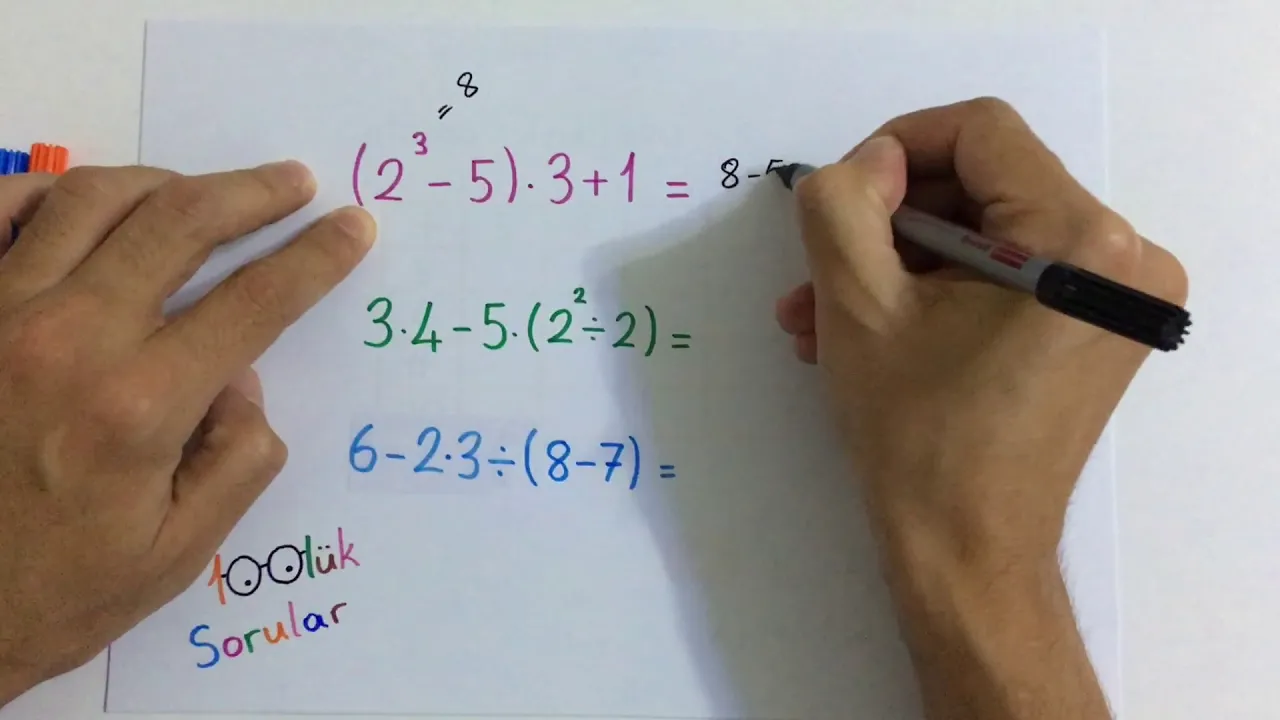 = 8
(2³ - 5) · 3 + 1 = 8 - 5
3 · 4 - 5 · (2² ÷ 2) =
6 - 2 · 3 ÷ (8 - 7) =
100lük
Sorular